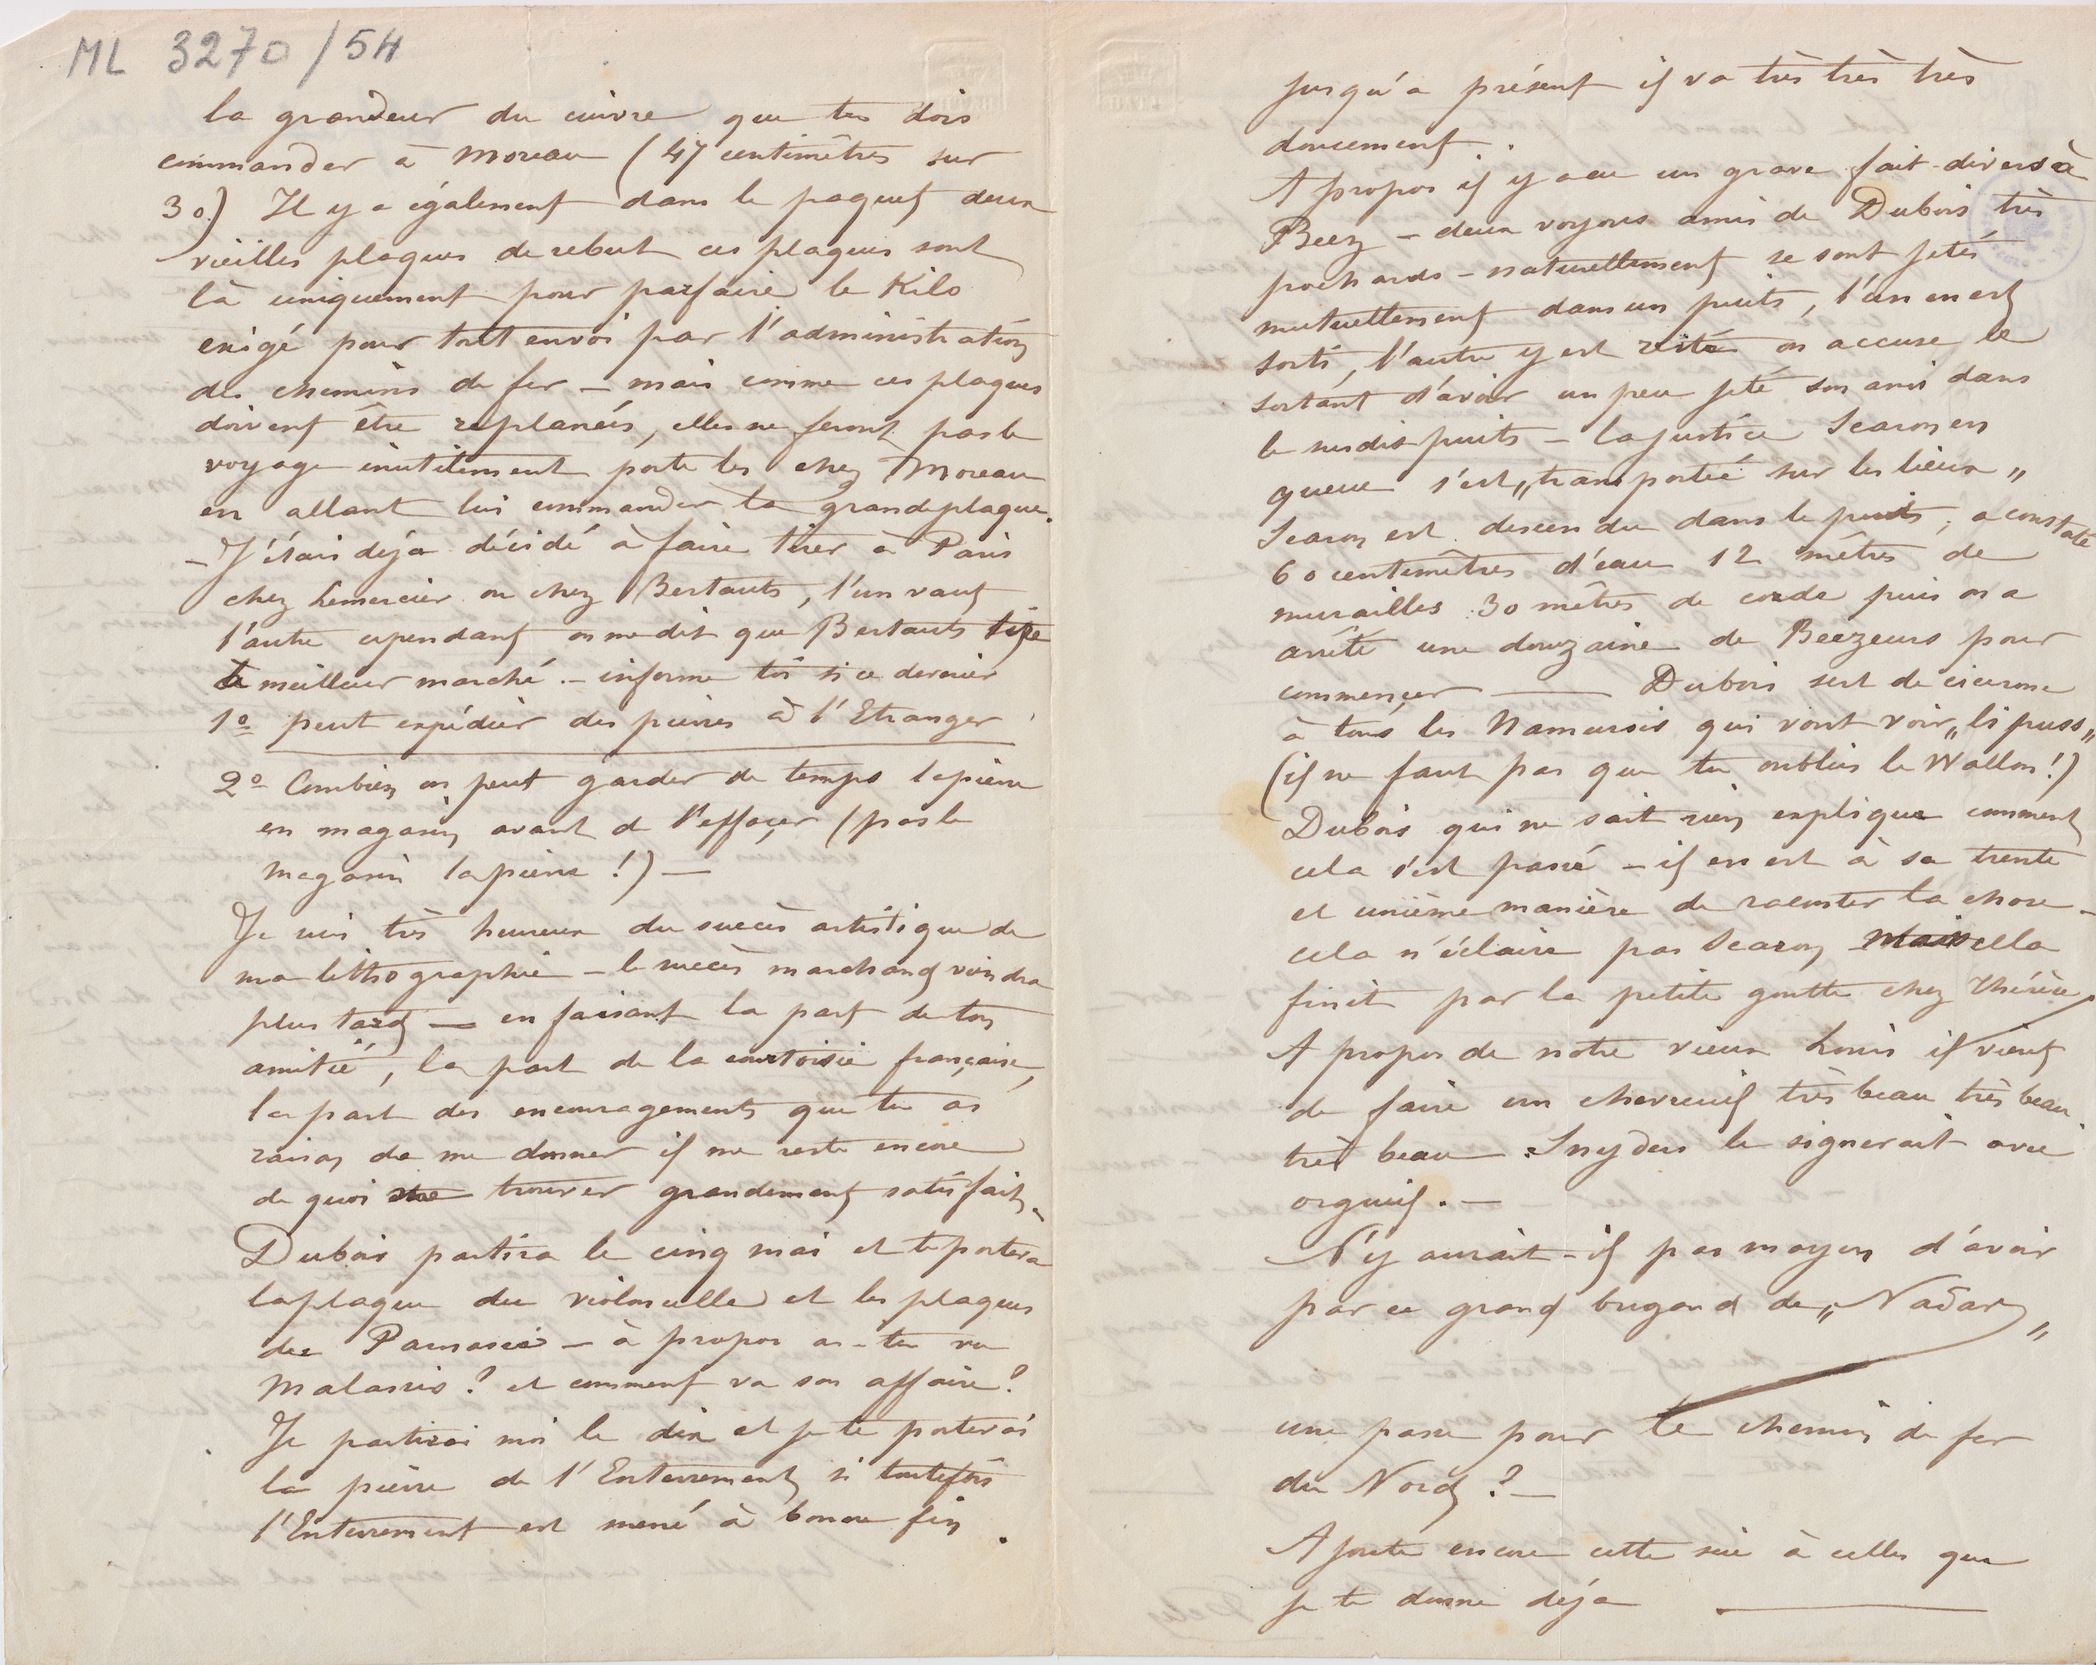 ML 3270/54
la grandeur du cuivre que tu dois
commander à Moreau (47 centimètres sur
30) Il y a également dans le paquet deux
vieilles plaques de rebut ces plaques sont
là uniquement pour parfaire le Kilo
exigé pour tout envoi par l'administration
des chemins de fer – mais comme ces plaques
doivent être replanées, elles ne feront pas le
voyage inutilement porte les chez Moreau
en allant lui commander la grande plaque.
– J'étais déjà décidé à faire tirer à Paris
chez Lemercier ou chez Bertauts, l'un vaut
l'autre cependant on me dit que Bertauts tire
à meilleur marché. – informe toi si ce dernier
1º peut expédier des pierres à l'Etranger
2º Combien on peut garder de temps la pierre
en magasin avant de l'effaçer (pas le
magasin la pierre !) –
Je suis très heureux du succès artistique de
ma lithographie – le succès marchand viendra
plus tard – en faisant la part de ton
amitié, la part de la courtoisie française,
la part des encouragements que tu as
raison de me donner il me reste encore
de quoi me trouver grandement satisfait.
Dubois partira le cinq mai et te portera
la plaque du violoncelle et les plaques
du Parnasse – à propos as-tu vu
Malassis ? et comment va son affaire ?
Je partirai moi le dix et je te porterai
la pierre de l'Enterrement si toutefois
l'Enterrement est mené à bonne fin.
Jusqu'à présent il va très très très
doucement.
A propos il y a eu un grave fait-divers à
Beez – deux voyous amis de Dubois très
pochards – naturellement se sont jetés
mutuellement dans un puits, l'un en est
sorti, l'autre y est resté on accuse le
sortant d'avoir un peu jeté son ami dans
le susdit puits – la justice Scaron en
queue s'est „transportée sur les lieux„
Scaron est descendu dans le puits, a constaté
60 centimètres d'eau 12 mètres de
murailles 30 mètres de corde puis on a
arrêté une douzaine de Beezeurs pour
commençer — Dubois sert de cicerone
à tous les Namurois qui vont voir „li puss„
(il ne faut pas que tu oublies le Wallon !)
Dubois qui ne sait rien explique comment
cela s'est passé – il en est à sa trente
et unième manière de raconter la chose –
cela n'éclaire pas Scaron mais cella
finit par la petite goutte chez Thérèse.
A propos de notre vieux Louis il vient
de faire un chevreuil très beau très beau
très beau Snyders le signerait avec
orgueil. –
N'y aurait-il pas moyen d'avoir
par ce grand brigand de „Nadar„
une passe pour le chemin de fer
du Nord ? –
Ajoute encore cette scie à celles que
je te donne déjà —